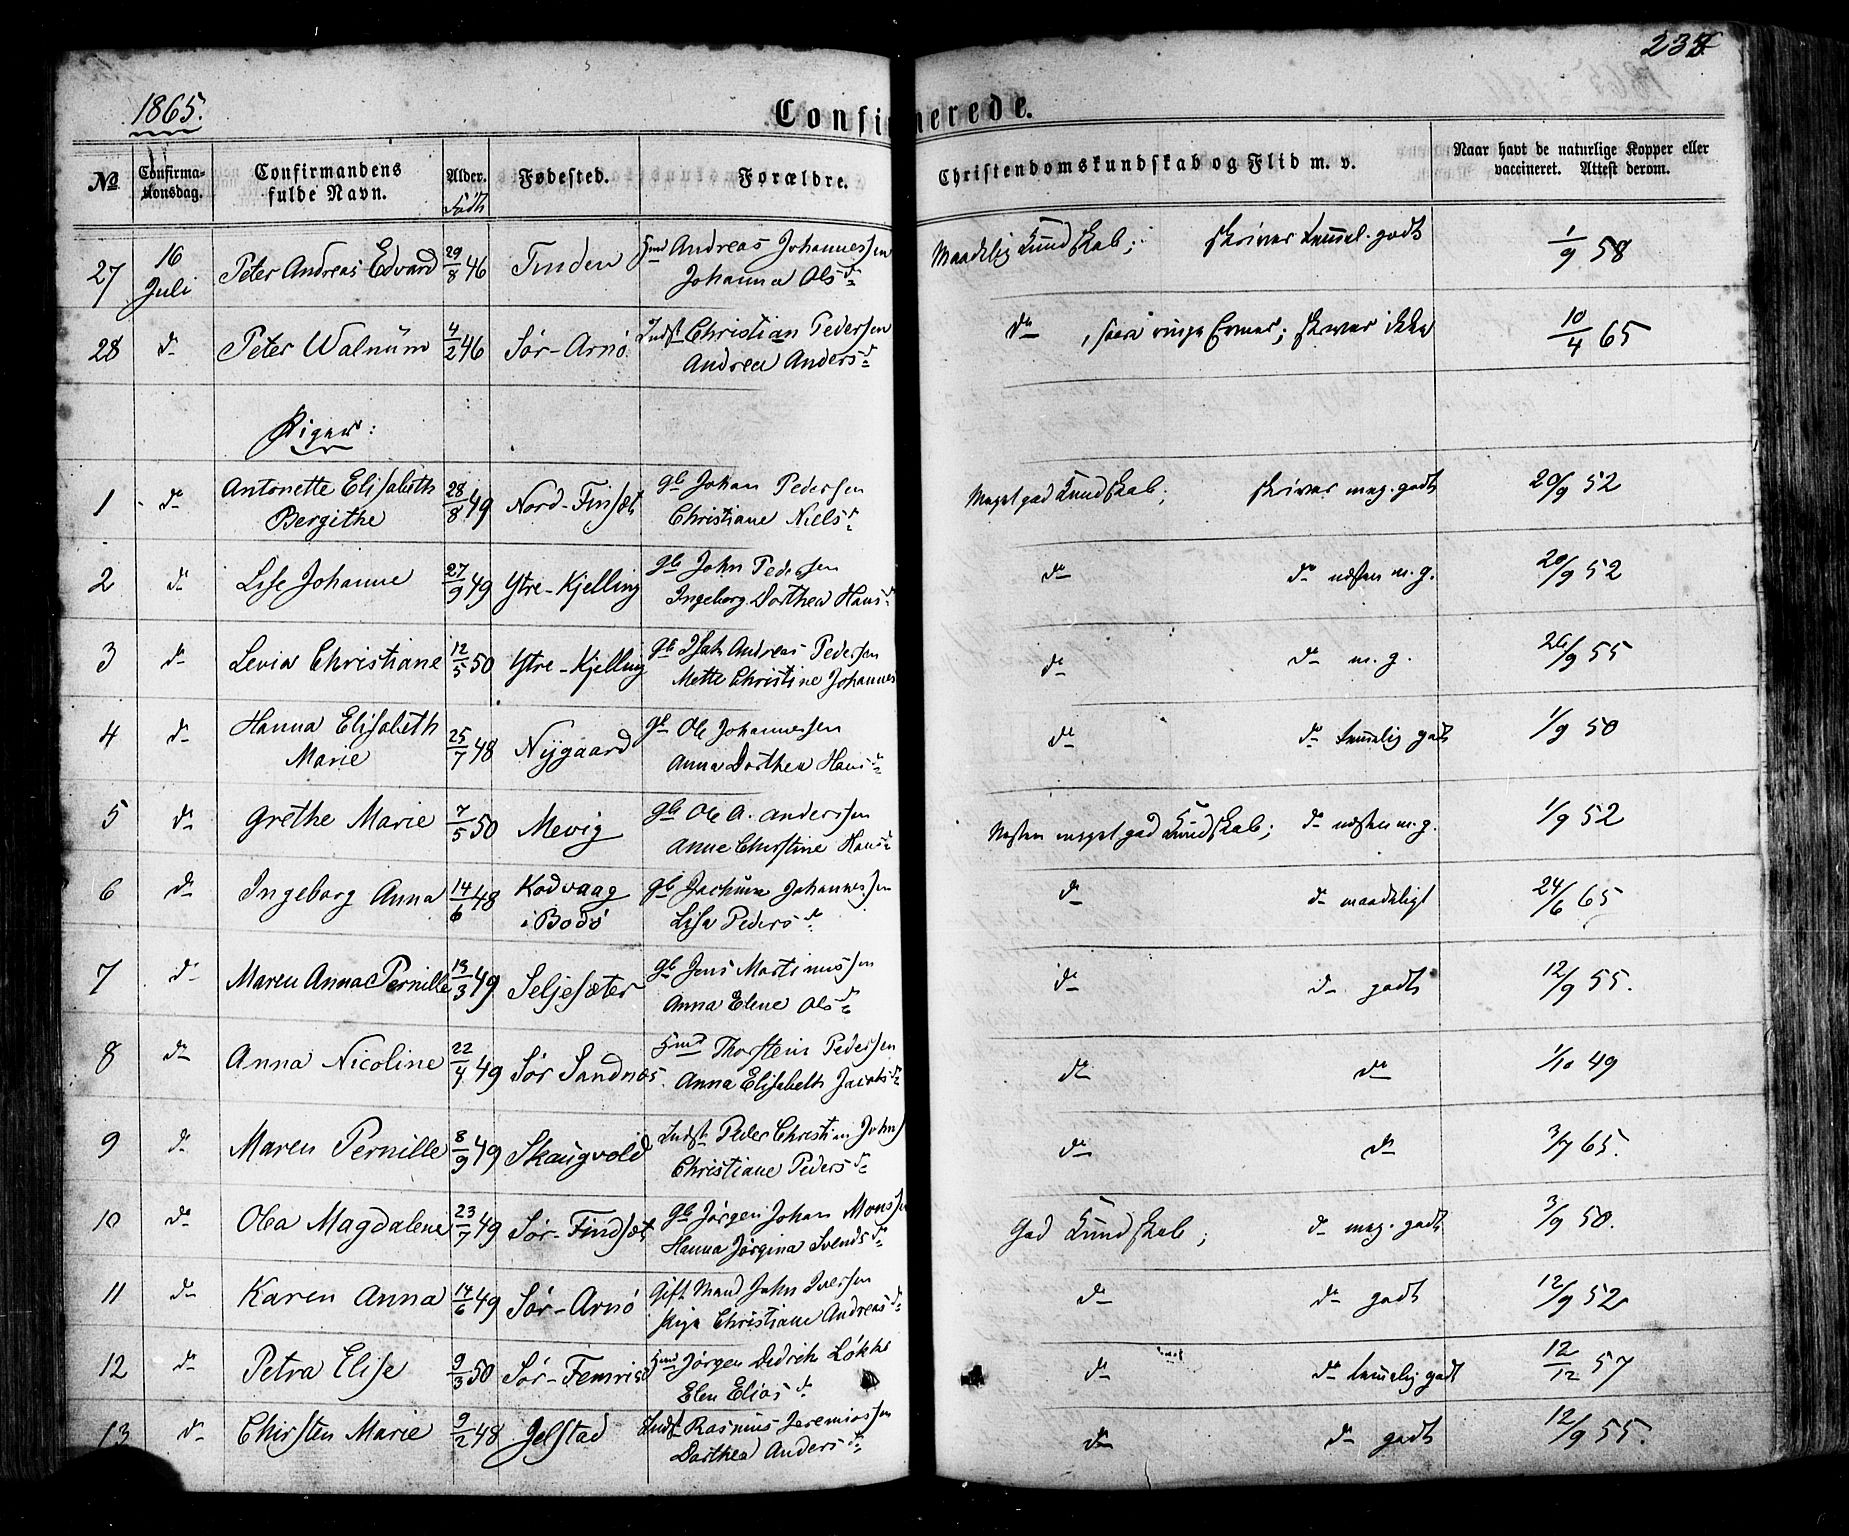 1865.
Confirmerede.
238
No
Confirma-
tionsdag.
Confirmandens
fulde Navn.
Alder.
Födt
Fødested.
Forældre.
Christendomskundskab og Flid m. v.
Naar havt de naturlige Kopper eller
vaccineret. Attest derom.
27 16 Juli Peter Andreas Edvard 29/8 46 Tinden Hmd Andreas Johannessen
Johanna Olsd.
Maadelig Kundskab; skriver temmel. godt 1/9 58
28 do Peter Walnüm 4/2 46 Sør-Arnø Indst Christian Pedersen
Andrea Andersd.
do, svare ringe Evner; skriver ikke 10/4 65
Piger:
1 do Antonette Elisabeth
Bergithe 28/8 49 Nord-Finsæt gb Johan Pedersen
Christiane Nielsd.
Meget god Kundskab; skriver meg. godt 20/9 52
2 do Lise Johanne 27/9 49 Ytre-Kjelling gb John Pedersen
Ingeborg Dorthea Hansd.
do do næsten m. g. 20/9 52
3 do Levia Christiane 12/5 50 Ytre-Kjelling gb Isak Andreas Pedersen
Mette Christine Johannes
do do m. g. 26/9 55
4 do Hanna Elisabeth
Marie 25/7 48 Nygaard gb Ole Johannessen
Anna Dorthea Hansd.
do do temmelig godt 1/9 50
5 do Grethe Marie 7/5 50 Mevig gb Ole A. Anderssen
Anne Christine Hansd.
Næsten meget god Kundskab; do næsten m. g. 1/9 52
6 do Ingeborg Anna 14/6 48 Kodvaag
i Bodø gb Jachum Johannessen
Lisa Pedersd.
do do maadeligt 24/6 65
7 do Maren Anna Pernille 13/3 49 Seljesæter gb Jens Martinussen
Anna Elene Olsd.
do do godt 12/9 55.
8 do Anna Nicoline 22/4 49 Sør Sandnes. Hmd Thorstein Pedersen
Anna Elisabeth Jacobsd.
do do 1/10 49
9 do Maren Pernille 8/9 49 Skaugvold Indst Peder Christian Johns
Christiane Pedersd.
do do 3/7 65.
10 do Olea Magdalene 23/7 49 Sør-Findsæt gb Jørgen Johan Monss
Hanna Jørgina Svendsd.
God Kundskab; do meg. godt 3/9 50.
11 do Karen Anna 14/6 49 Sør-Arnø Gift Mand John Iversen
Pige Christiane Andreasd.
do do godt 12/9 52
12 do Petra Elise 9/3 50 Sør-Femris Hmd Jørgen Didrik Løkke
Elen Eliasd.
do do temmelig godt 12/12 57
13 do Chirsten Marie 9/2 48 Jelstad Indst Rasmus Jeremiassen
Dorthea Andersd.
do do godt 12/9 55.